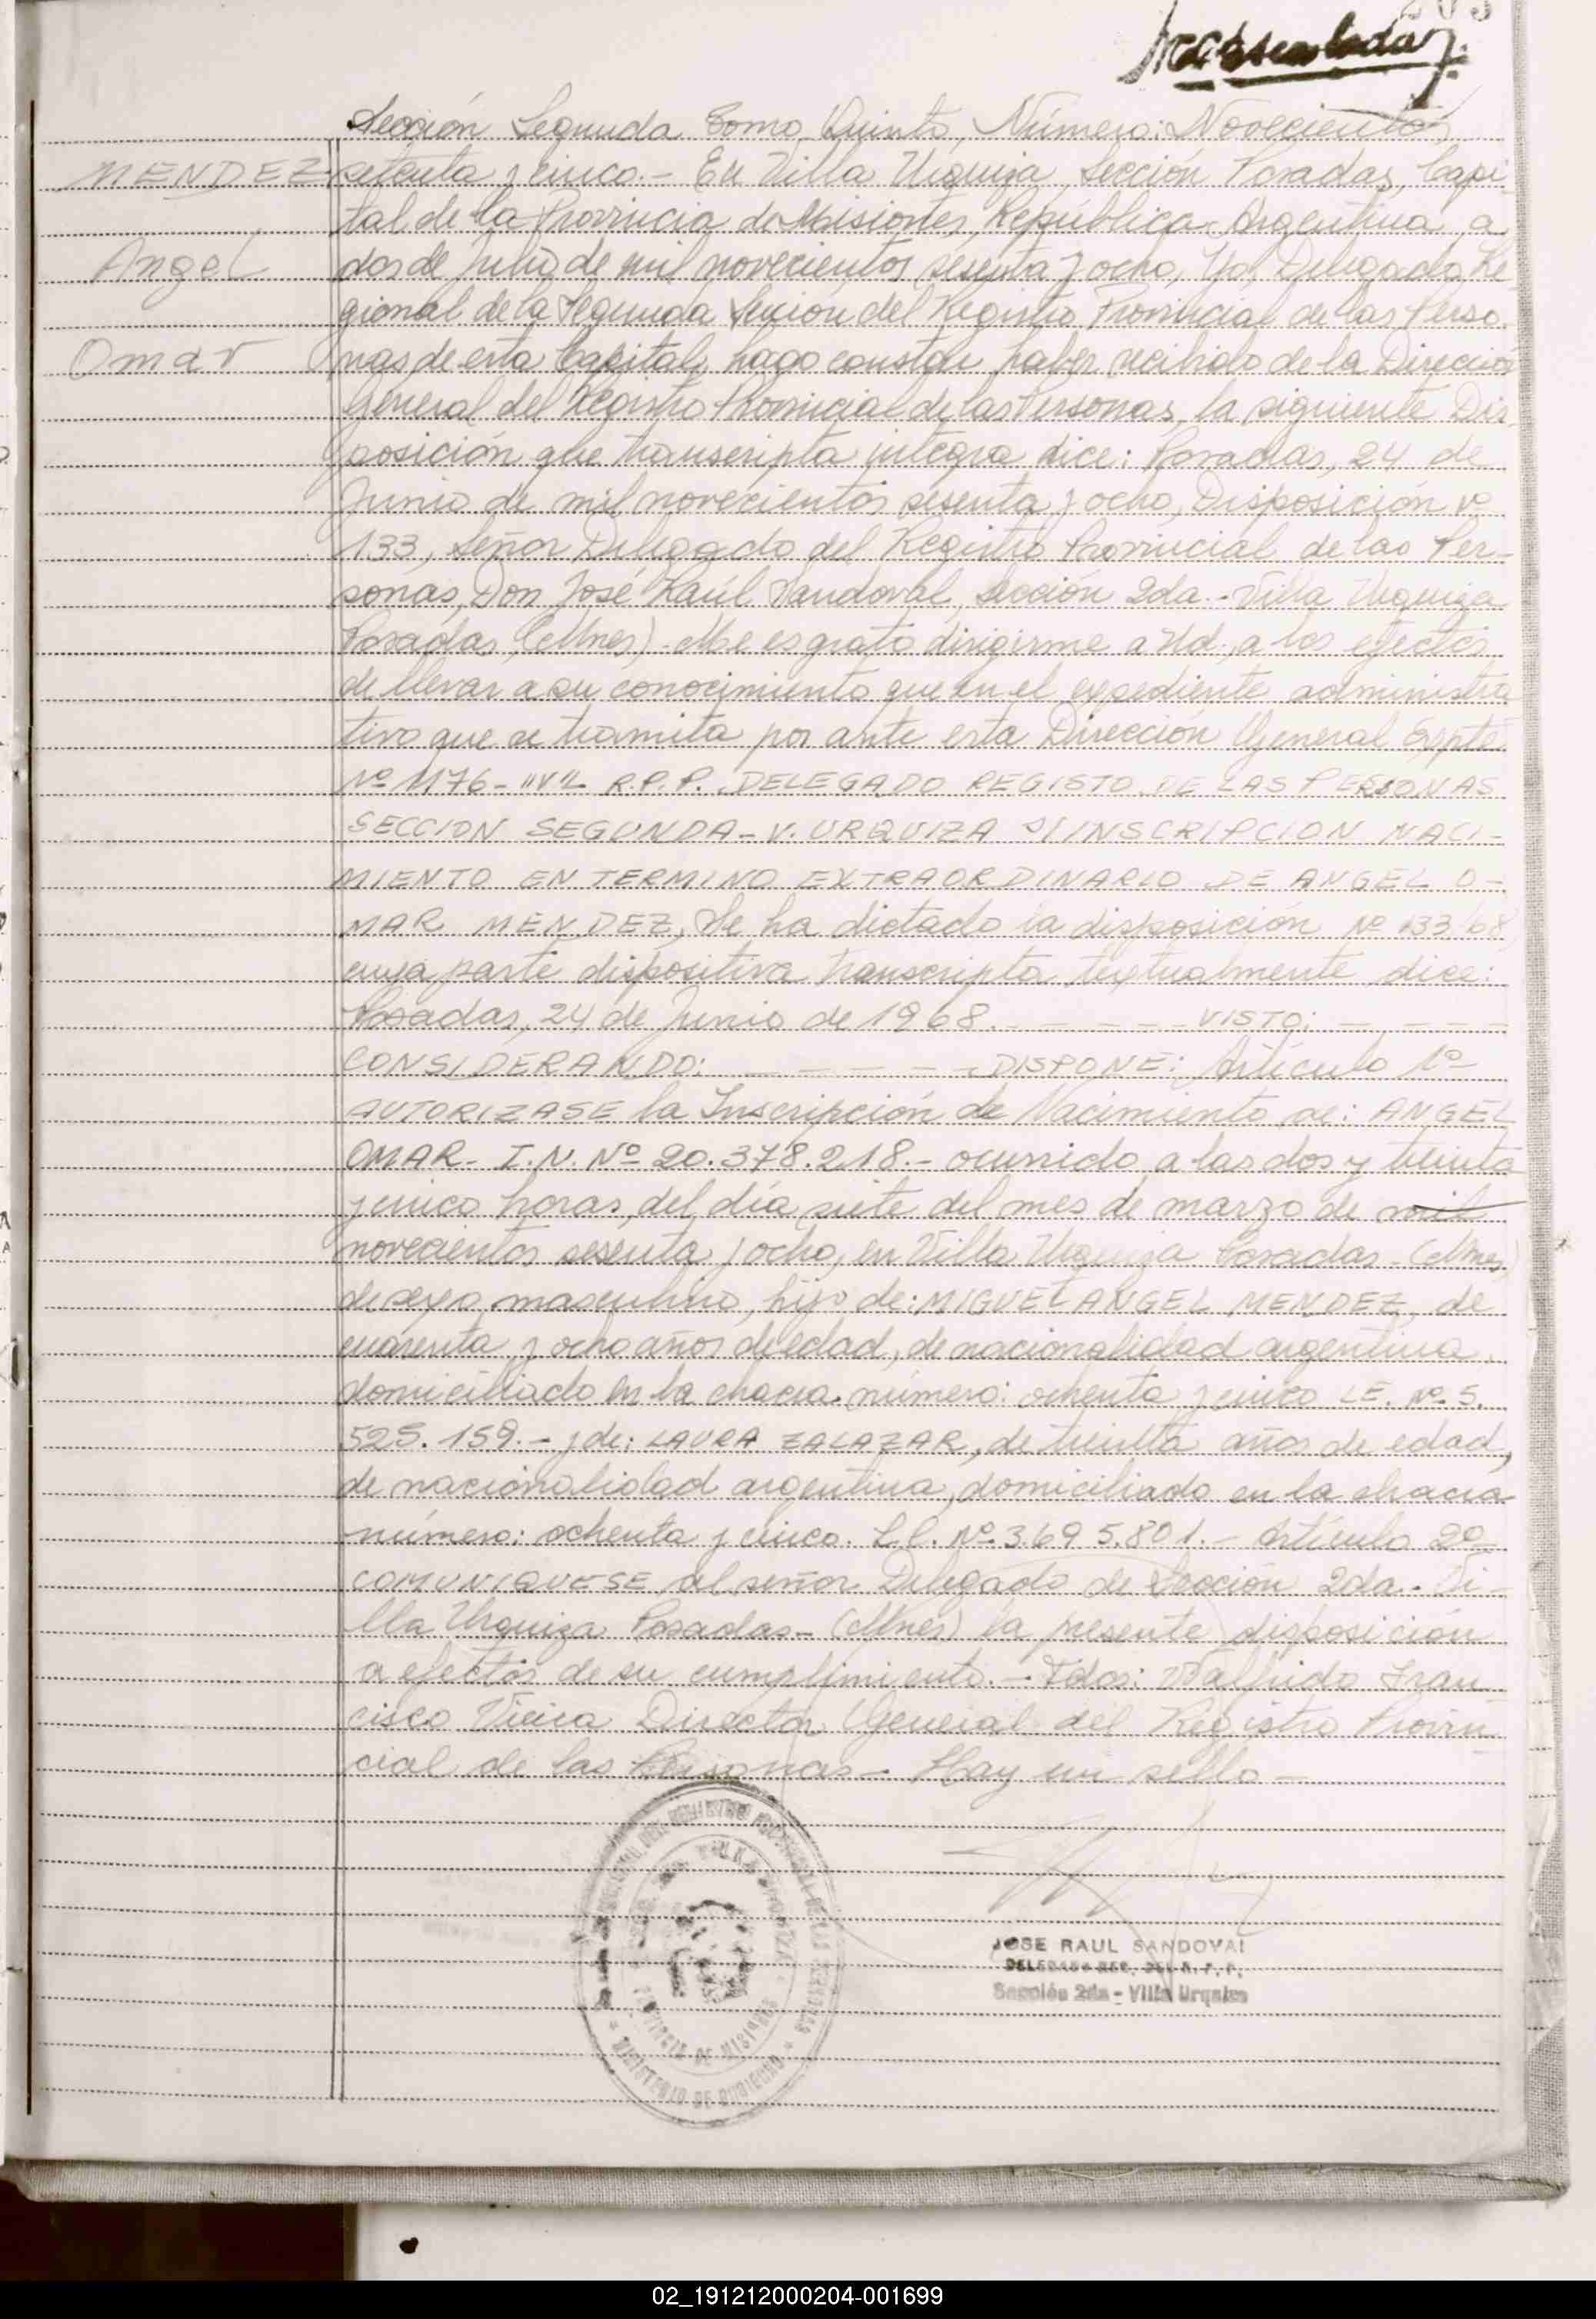 203
Sección Segunda Tomo Quinto, Número: Novecientos
MENDEZ
setenta y cinco.- En Villa Urquiza, Sección Posadas, Capi-
tal de la Provincia de Misiones, República Argentina, a
Angel
dos de Julio de mil novecientos sesenta y ocho, Yo, Delegado Re
gional de la Segunda Sección del Registro Provincial de las Perso-
Omar
nas de esta Capital, hago constar haber recibido de la Dirección
General del Registro Provincial de las Personas, la siguiente Dis-
posición que transcripta integra dice: Posadas, 24 de
Junio de mil novecientos sesenta y ocho, Disposición Nº
133, Señor Delegado del Registro Provincial de las Per-
sonas, Don José Raúl Sandoval, Sección 2da.- Villa Urquiza
Posadas, (Mnes).- Me es grato dirigirme a Ud., a los efectos
de llevar a su conocimiento que en el expediente administra
tivo que se tramita por ante esta Dirección General Expte
Nº 1176-"V"- R.P.P. DELEGADO REGISTO DE LAS PERSONAS
SECCION SEGUNDA - V. URQUIZA S/INSCRIPCION NACI-
MIENTO EN TERMINO EXTRAORDINARIO DE ANGEL O-
MAR MENDEZ, Se ha dictado la disposición Nº 133/68,
cuya parte dispositiva transcripta textualmente dice:
Posadas, 24 de Junio de 1968. - - - - - VISTO: - - - -
CONSIDERANDO: - - - - - DISPONE: Artículo 1º
AUTORIZASE la Inscripción de Nacimiento de: ANGEL
OMAR- I.N. Nº 20.378.218.- ocurrido a las dos y treinta
y cinco horas, del día siete del mes de marzo de mil
novecientos sesenta y ocho, en Villa Urquiza Posadas - (Mnes)
de sexo masculino, hijo de: MIGUEL ANGEL MENDEZ, de
cuarenta y ocho años de edad, de nacionalidad argentina,
domiciliado en la chacra número: ochenta y cinco L.E. Nº 5.
525.159.- y de: LAURA ZALAZAR, de treinta años de edad,
de nacionalidad argentina, domiciliado en la chacra
número: ochenta y cinco. L.C. Nº 3.695.801.- Artículo 2º
COMUNIQUESE al señor Delegado de Sección 2da.- Vi-
lla Urquiza Posadas- (Mnes) la presente disposición
a efectos de su cumplimiento.- Fdos: Walfrido Fran-
cisco Vieira Director General del Registro Provin-
cial de las Personas - Hay un sello -
JOSE RAUL SANDOVAL
DELEGADO REG. DEL R. P. P.
Sección 2da - Villa Urquiza
PROVINCIA DE MISIONES
MINISTERIO DE GOBIERNO
02_191212000204-001699